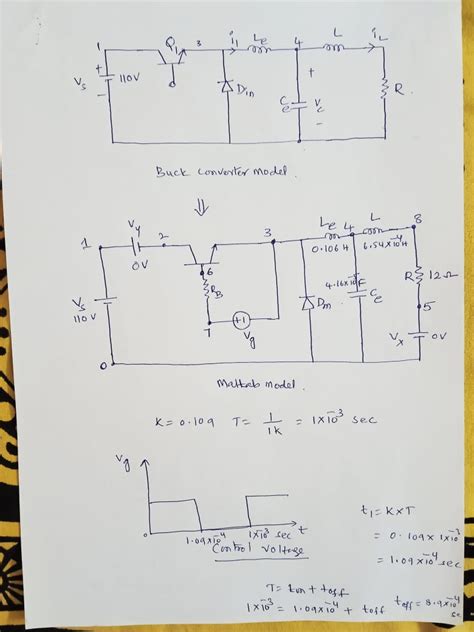 Q1
1
3
i1
Le
4
L
iL
+
Vs
110V
-
Dm
Ce
+
Vc
-
R
Buck Converter model.
⇓
Vy
1
2
0V
3
Le
4
L
8
0.106 H
6.54×10⁻⁴H
6
RB
7
+1
Vg
Vs
110 V
Dm
4.16×10⁻⁵F
Ce
R
12Ω
5
Vx
0V
0
Matlab model.
K = 0.109 T = 1/1K = 1×10⁻³ sec
Vg
0
1.09×10⁻⁴
1×10⁻³ sec
t
Control Voltage
t1 = K×T
= 0.109×1×10⁻³
= 1.09×10⁻⁴ sec
T = ton + toff
1×10⁻³ = 1.09×10⁻⁴ + toff
toff = 8.9×10⁻⁴
sec